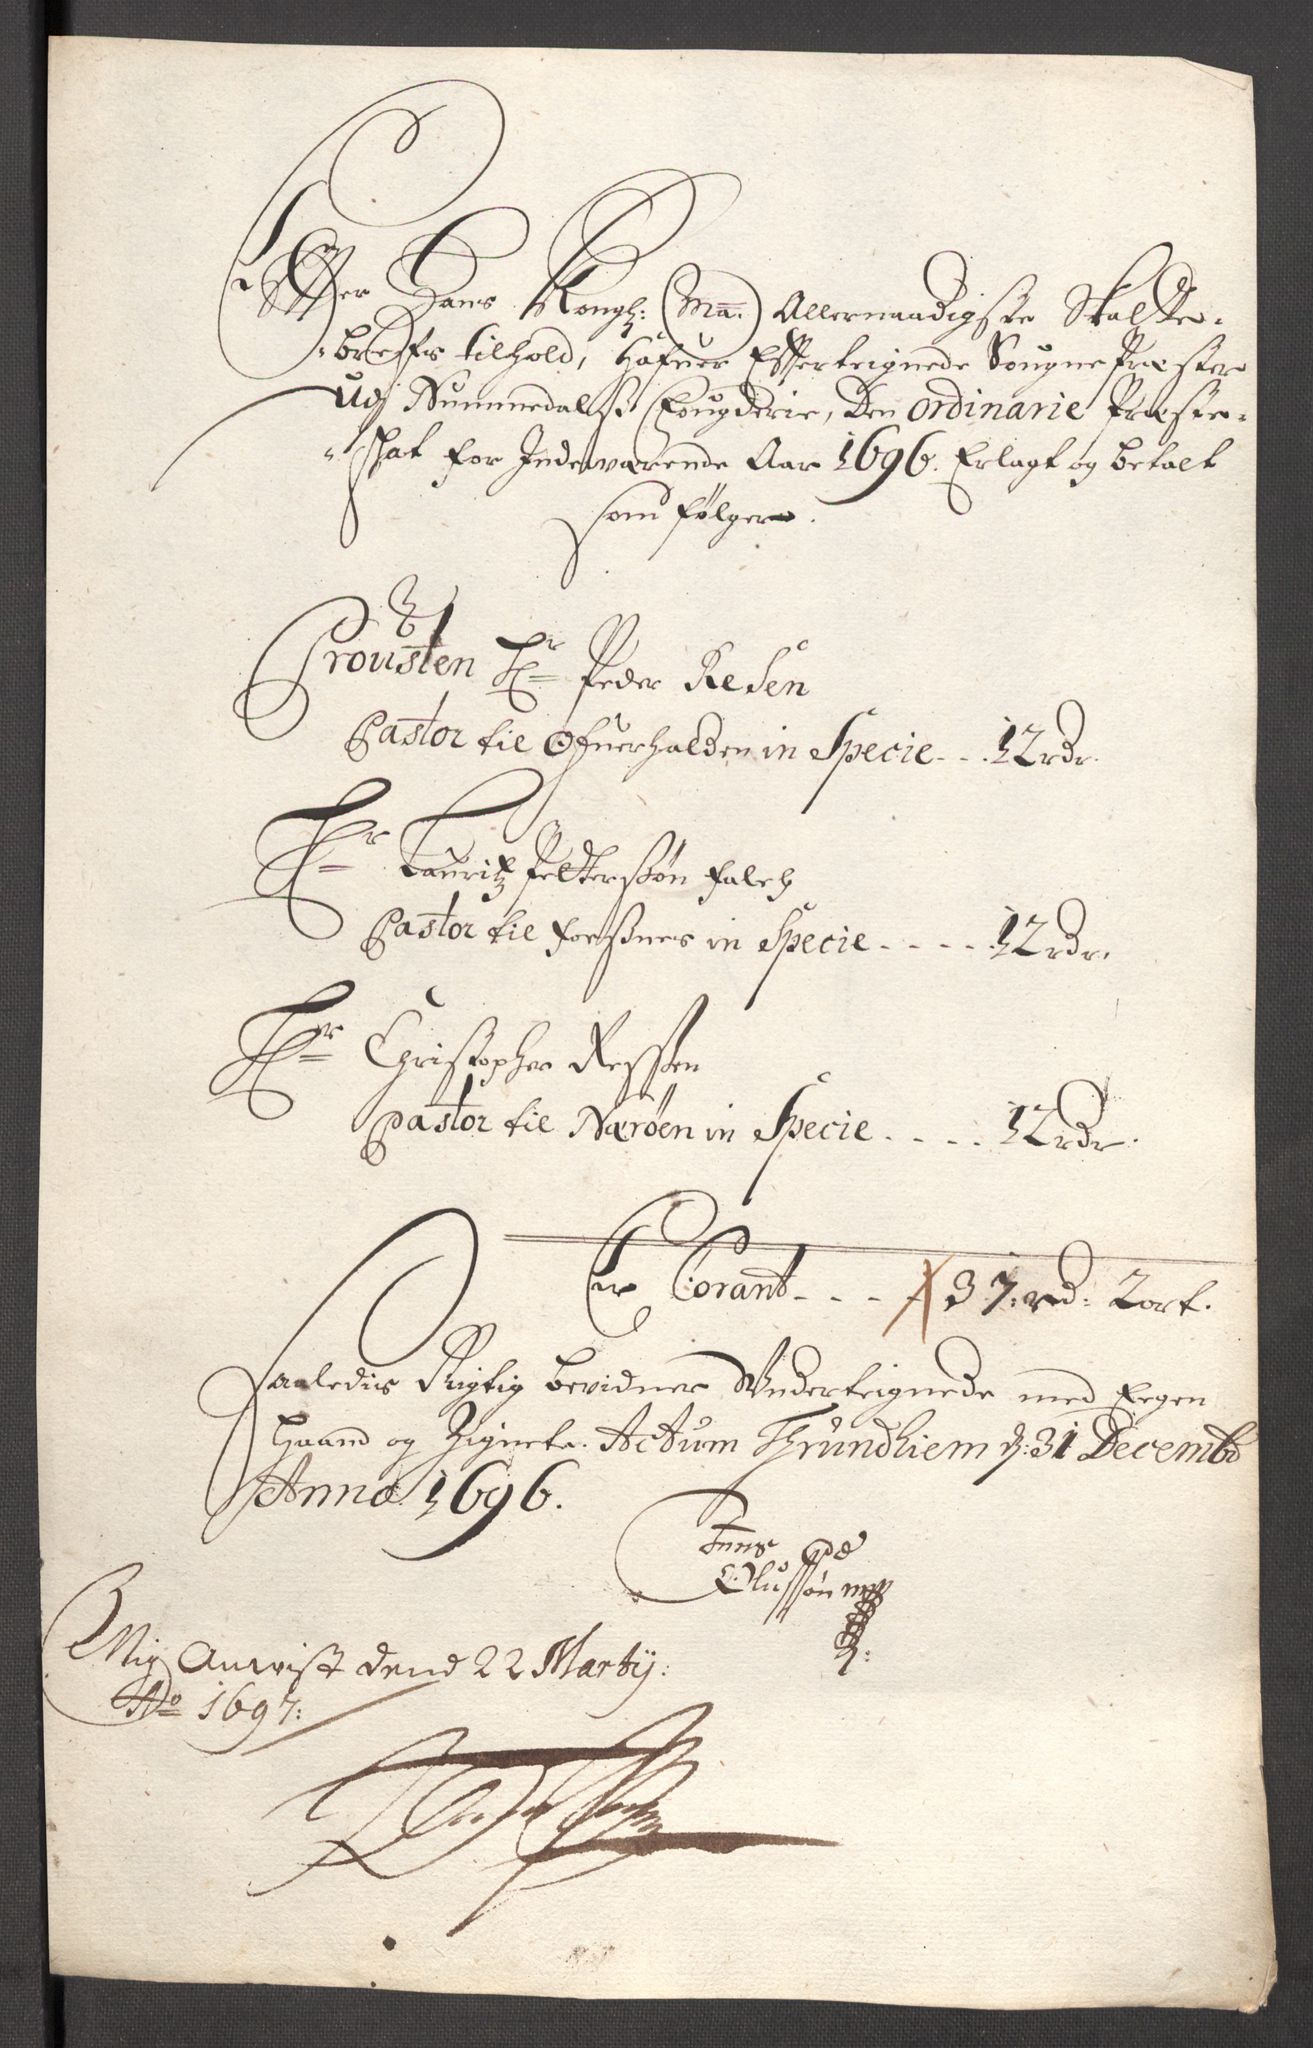 Effter Hans Kongl: (Ma:) Allernaadigste Skatte-
brefs tilhold, Hafuer Efferteignede Sougne Præster
Udj Nummedals Fougderie, Den ordinarie Præste-
skat for Indewærende Aar 1696. Erlagt og betalt
som følger.
Prousten Hr Peder Resen
Pastor til Ofuerhalden in Specie - - . 12 rdr.
Hr Lauritz Pettersøn Falch
Pastor til Foesnes in Specie - - - - 12 rdr.
Hr Christopher Ressen
Pastor til Nærøen in Specie . - - . 12 rdr.
Er Corant - - - - 37: rd: 2 ort.
Saaledis Rigtig bevidner Underteignede med Eegen
Haand og Zignete. Actum Thrundhiem d: 31 Decembr
Anno 1696.
Olufsøn
Mig Anvist dend 22 Martij:
Ao 1697: